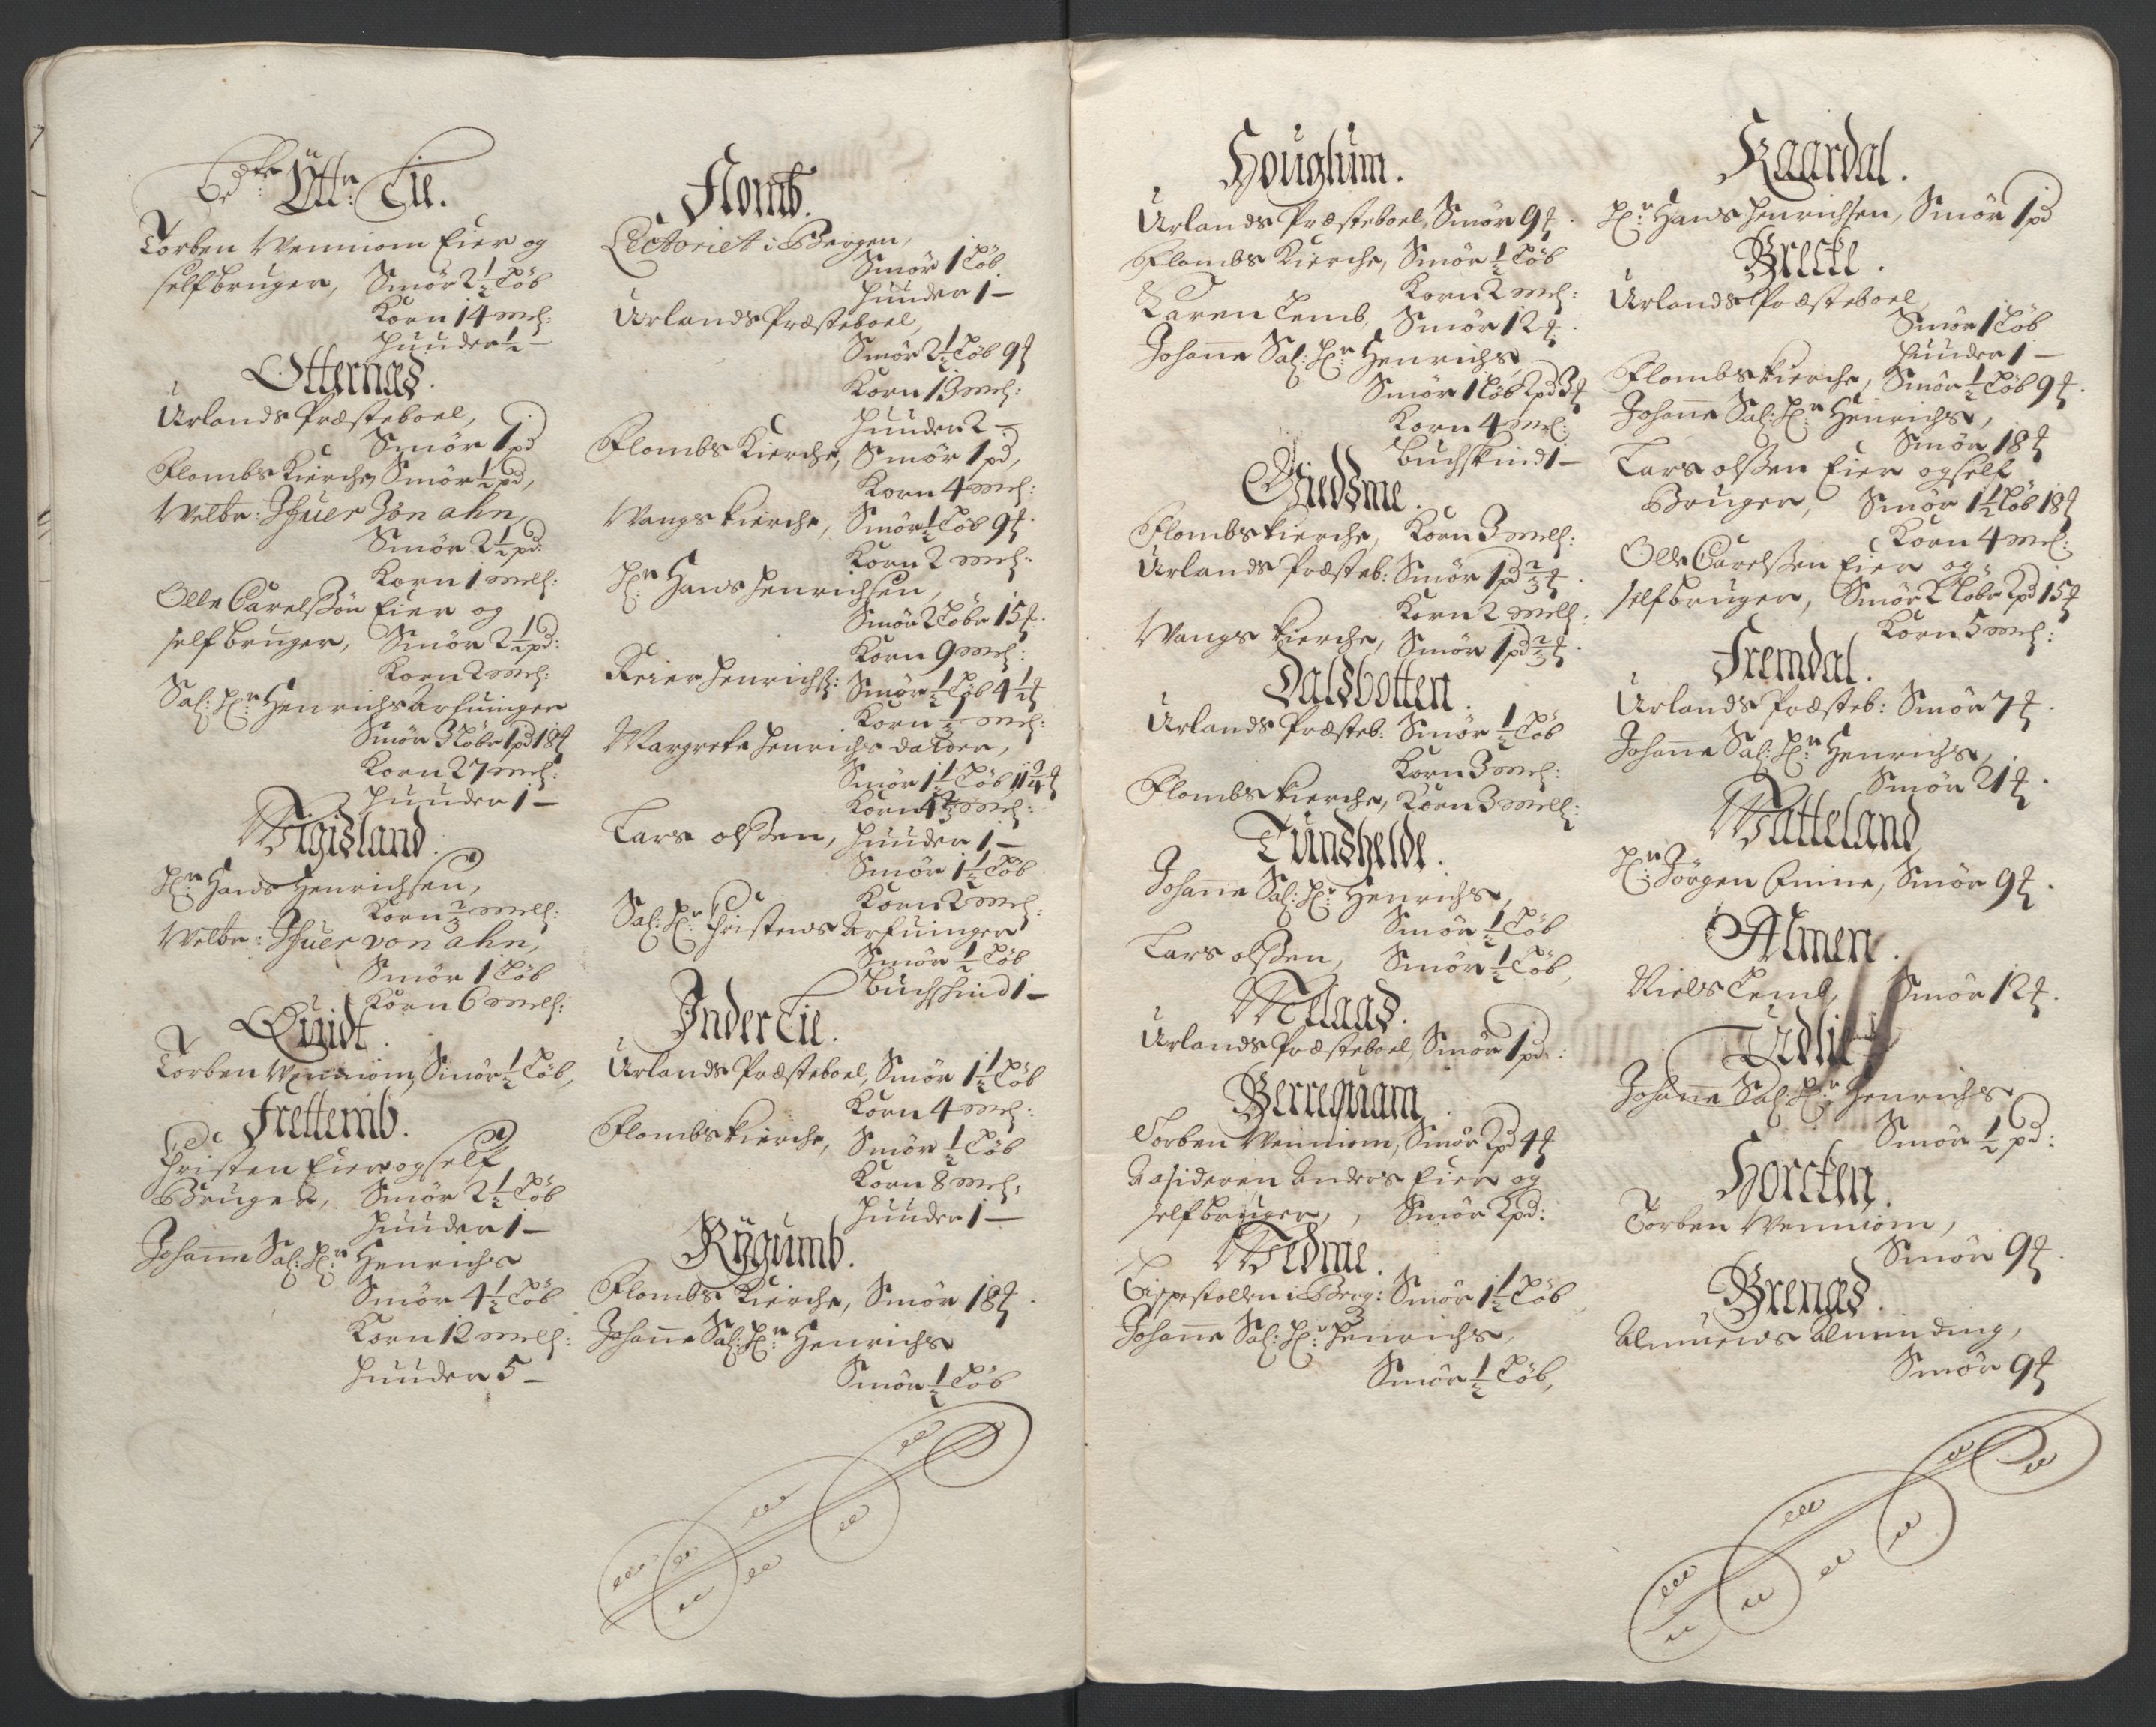 Ytter Lie.
Torben Wenniom Eier og
self bruger, Smör 2½ Löb
Korn 14 Mel:
Huuder ½ —
Otternæs.
Urlands Præsteboel,
Smör 1 pd
Flombs Kierche, Smör ½ pd,
Welbr: Ifuer von ahn,
Smör 2½ pd:
Korn 1 mell:
Olle Carelssön Eier og
self bruger, Smör 2½ pd:
Korn 2 mel:
Sal: Hr: Henrichs Arfuinger
Smör 3 Löbr 1 pd 18 ₰
Korn 27 mel:
Huuder 1 —
Wigisland.
Hr: Hans Henrichsen,
Korn ⅔ mell:
Welbr: Ifuer von ahn,
Smör 1 Löb
Korn 6 mell:
Quidt.
Torben Wenniom, Smör ½ Löb,
Frettemb.
Christen Eier og self
Bruger, Smör 2½ Löb
Huuder 1 —
Johanne Sal: Hr: Henrichs
Smör 4½ Löb
Korn 12 mell:
Huuder 5 —
Flomb.
Lectoriet i Bergen,
Smör 1 Löb
Huuder 1 —
Urlands Præsteboel,
Smör 2½ Löb 9 ₰
Korn 13 mel:
Huuder 2 —
Flombs Kierche, Smör 1 pd,
Korn 4 mel:
Wangs Kierche, Smör ½ Löb 9 ₰.
Korn 2 mel:
Hr: Hans Henrichsen,
Smör 2 Löbr 15 ₰.
Korn 9 mel:
Reier Henrichs: Smör ½ Löb 4½ ₰
Korn ⅓ mel:
Margrete Henrichs datter,
Smör 1½ Löb 11¾ ₰
Korn 4⅔ mel:
Lars olssen, Huuder 1 —
Smör 1½ Löb
Korn 2 mel:
Sal: Hr: Christens Arfuinger
Smör ½ Löb
Buchskind 1 —
Inder Lie.
Urlands Præsteboel, Smör 1½ Löb
Korn 4 mel:
Flombs Kierche, Smör ½ Löb
Korn 8 mel:
Huuder 1 —
Rÿgumb.
Flombs Kierche, Smör 18 ₰.
Johanne Sal: Hr: Henrichs
Smör ½ Löb
Houglum.
Urlands Præsteboel, Smör 9 ₰.
Flombs Kierche, Smör ½ Löb
Korn 2 mel:
Karen Lemb, Smör 12 ₰.
Johanne Sal: Hr: Henrichs,
Smör 1 Löb 2 pd 3 ₰
Korn 4 mel:
Buchskind 1 —
Giedsme.
Flombs Kierche, Korn 3 mell:
Urlands Præsteb: Smör 1 pd ⅔ ₰.
Korn 2 mell:
Wangs Kierche, Smör 1 pd ⅔ ₰.
Dalsbotten.
Urlands Præsteb: Smör ½ Löb
Korn 3 mel:
Flombs Kierche, Korn 3 mell:
Tundshelde.
Johanne Sal: Hr: Henrichs,
Smör ½ Löb
Lars olssen, Smör ½ Löb,
Melaas.
Urlands Præsteboel, Smör 1 pd:
Berrequam.
Torben Wenniom, Smör 2 pd 4 ₰
Anders Eier og
self bruger, Smör 2 pd:
Wedme.
Bispestollen i Berg: Smör 1½ Löb,
Johanne Sal: Hr: Henrichs,
Smör ½ Löb,
Kaardal.
Hr: Hans Henrichsen, Smör 1 pd
Brecke.
Urlands Præsteboel,
Smör 1 Löb
Huuder 1 —
Flombs Kierche, Smör ½ Löb 9 ₰.
Johanne Sal: Hr: Henrichs,
Smör 18 ₰
Lars olssen Eier og self
Bruger, Smör 1½ Löb 18 ₰
Korn 4 mel:
Olle Carelssen Eier og
self bruger, Smör 2 Löbr 2 pd 15 ₰
Korn 5 mel:
Fremdal.
Urlands Præsteb: Smör 7 ₰.
Johanne Sal: Hr: Henrichs,
Smör 21 ₰.
Watteland
Hr: Jörgen Finne, Smör 9 ₰.
Almen.
Niels Lemb, Smör 12 ₰.
Udlie
Johanne Sal: Hr: Henrichs
Smör ½ pd:
Horcken.
Torben Wenniom,
Smör 9 ₰.
Grenæs.
Almuens Alminding,
Smör 9 ₰